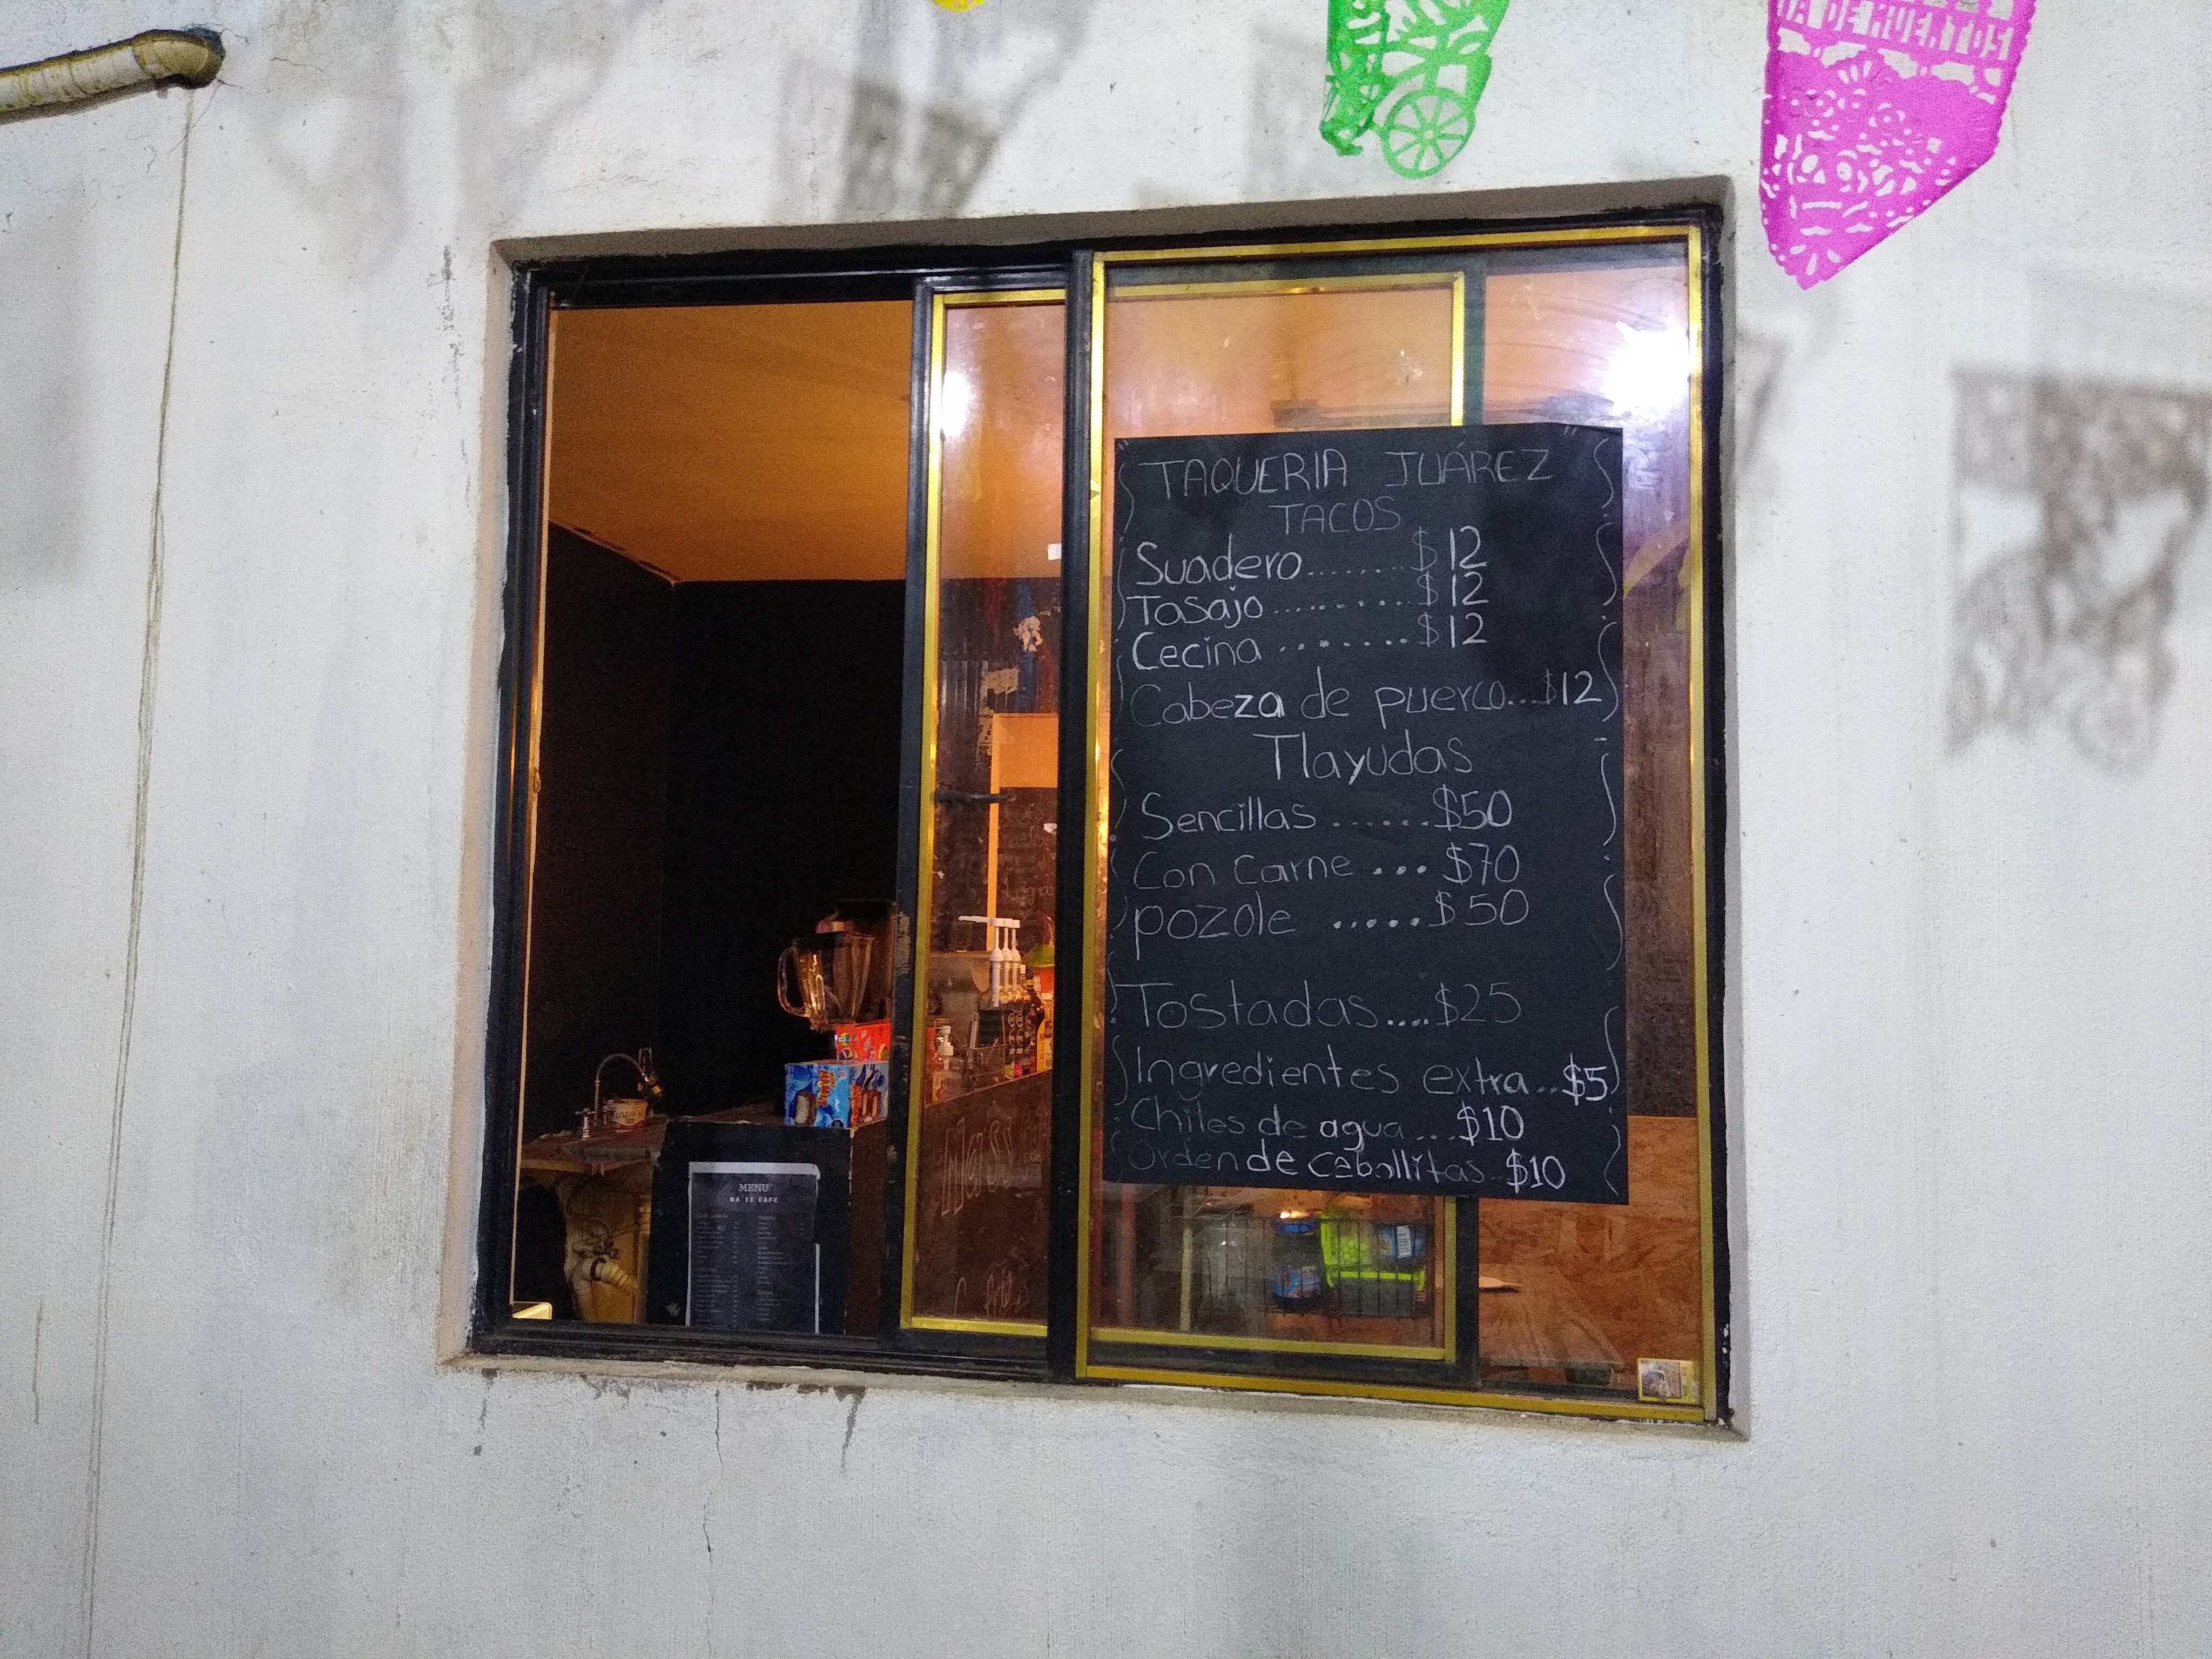 TA DE MUERTOS
"TAQUERIA JUÁREZ"
TACOS
Suadero........$12
Tasajo..........$12
Cecina ........$12
Cabeza de puerco...$12
Tlayudas
Sencillas ......$50
Con Carne ... $70
pozole .....$50
Tostadas....$25
Ingredientes extra...$5
Chiles de agua...$10
Orden de Cebollitas..$10
MENU
CAFE